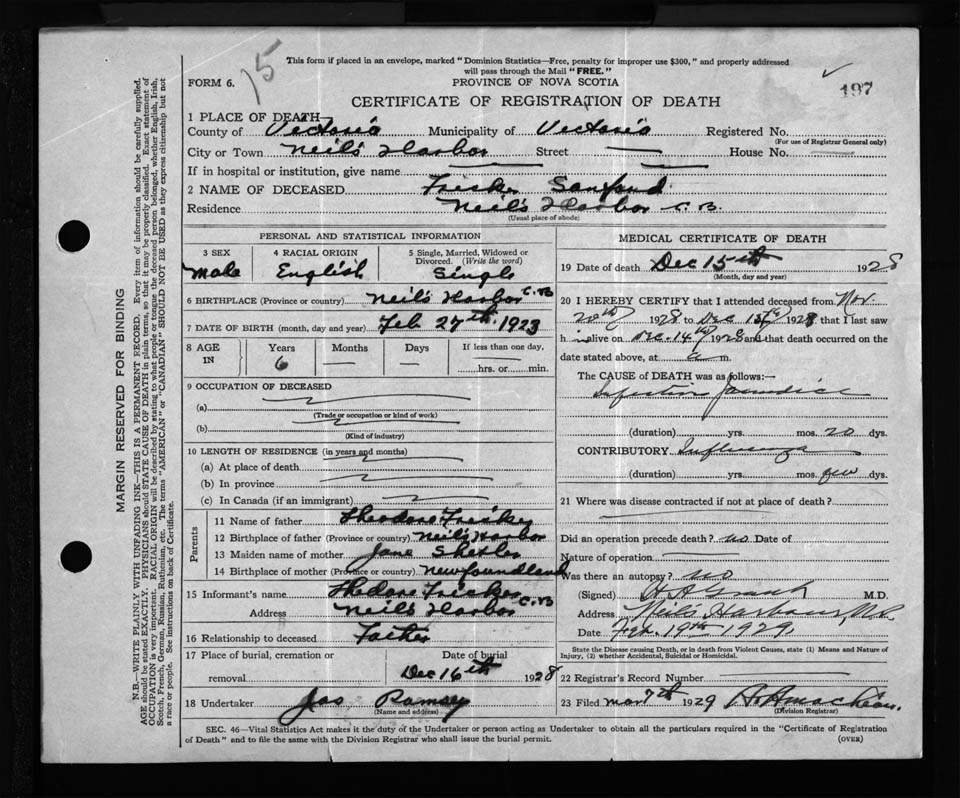 15
This form if placed in an envelope, marked "Dominion Statistics—Free, penalty for improper use $300," and properly addressed
will pass through the Mail "FREE."
FORM 6.
PROVINCE OF NOVA SCOTIA
197
CERTIFICATE OF REGISTRATION OF DEATH
1 PLACE OF DEATH
County of Victoria Municipality of Victoria Registered No.
(For use of Registrar General only)
City or Town Neil's Harbor Street House No.
If in hospital or institution, give name
2 NAME OF DECEASED Fricker Sanford
Residence Neil's Harbor C.B.
(Usual place of abode)
PERSONAL AND STATISTICAL INFORMATION
3 SEX 4 RACIAL ORIGIN 5 Single, Married, Widowed or
Divorced. (Write the word)
Male English Single
6 BIRTHPLACE (Province or country) Neil's Harbor C.B
7 DATE OF BIRTH (month, day and year) Feb 27th 1923
8 AGE IN Years Months Days If less than one day,
6 — — hrs. or min.
9 OCCUPATION OF DECEASED
(a)
(Trade or occupation or kind of work)
(b)
(Kind of industry)
10 LENGTH OF RESIDENCE (in years and months)
(a) At place of death
(b) In province
(c) In Canada (if an immigrant)
Parents
11 Name of father Theodore Fricker
12 Birthplace of father (Province or country) Neil's Harbor
13 Maiden name of mother Jane
14 Birthplace of mother (Province or country) Newfoundland
15 Informant's name Thedore Fricker
Address Neil's Harbor C.B
16 Relationship to deceased Father
17 Place of burial, cremation or Date of burial
removal Dec 16th 1928
18 Undertaker Jas Ramsey
(Name and address)
MEDICAL CERTIFICATE OF DEATH
19 Date of death Dec 15th 1928
(Month, day and year)
20 I HEREBY CERTIFY that I attended deceased from Nov.
20th 1928 to Dec 15th 1928 that I last saw
h im alive on Dec. 14th 1928 and that death occurred on
date stated above, at a m.
The CAUSE of DEATH was as follows:—
Infectious Jaundice
(duration) yrs. mos. 20 dys.
CONTRIBUTORY Influenza
(duration) yrs. mos. few dys.
21 Where was disease contracted if not at place of death?
Did an operation precede death? no Date of
Nature of operation
Was there an autopsy? no
(Signed) M.D.
Address Neil's Harbour, N.S.
Date Feb. 19th 1929
State the Disease causing Death, or in death from Violent Causes, state (1) Means and Nature of
Injury, (2) whether Accidental, Suicidal or Homicidal.
22 Registrar's Record Number
23 Filed Mar 7th 1929
(Division Registrar)
SEC. 46—Vital Statistics Act makes it the duty of the Undertaker or person acting as Undertaker to obtain all the particulars required in the "Certificate of Registration
of Death" and to file the same with the Division Registrar who shall issue the burial permit.
(OVER)
MARGIN RESERVED FOR BINDING
N.B.—WRITE PLAINLY WITH UNFADING INK—THIS IS A PERMANENT RECORD. Every item of information should be carefully supplied.
AGE should be stated EXACTLY. PHYSICIANS should STATE CAUSE OF DEATH in plain terms, so that it may be properly classified. Exact statement of
OCCUPATION is very important. RACIAL ORIGIN will be described by stating to what people or tongue the deceased person belonged, whether English, Irish,
Scotch, French, German, Russian, Ruthenian, etc. The terms "AMERICAN" or "CANADIAN" SHOULD NOT BE USED as they express citizenship but not
a race or people. See instructions on back of Certificate.